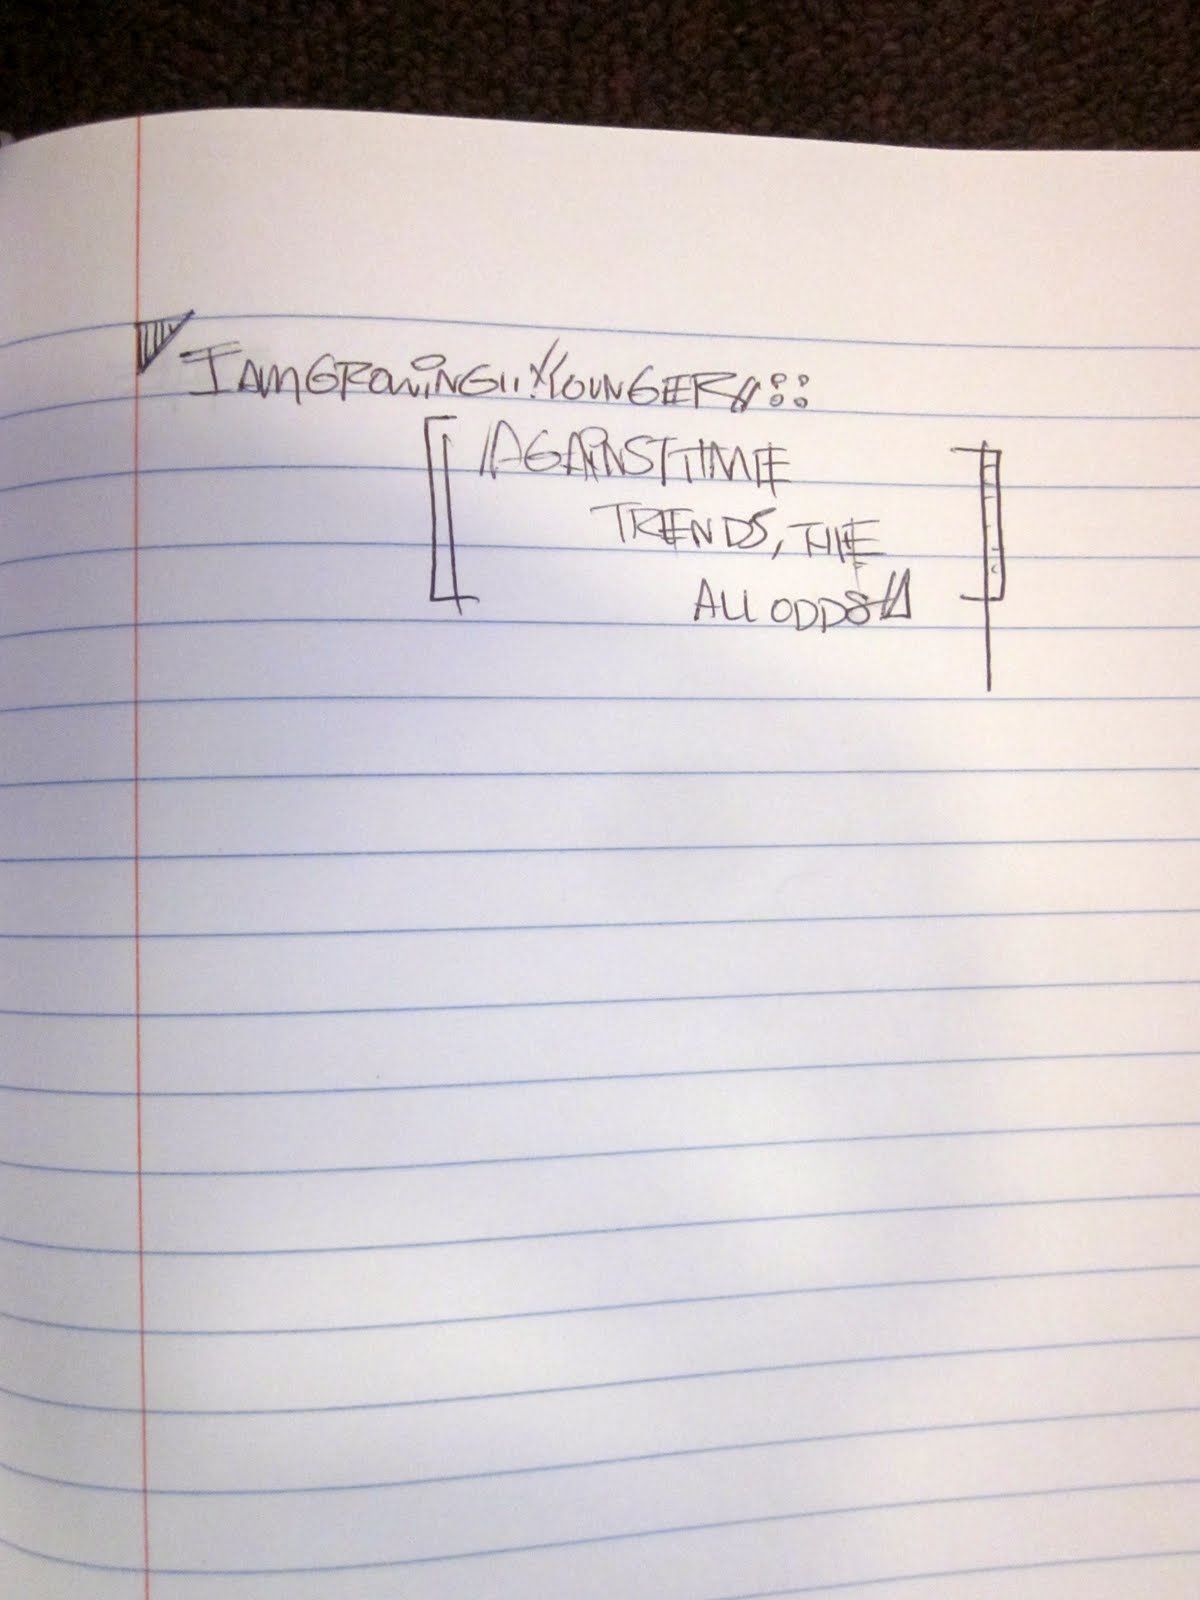 I AM GROWING..YOUNGER//::
[//AGAINST TIME
TRENDS, THE
ALL ODDS//]